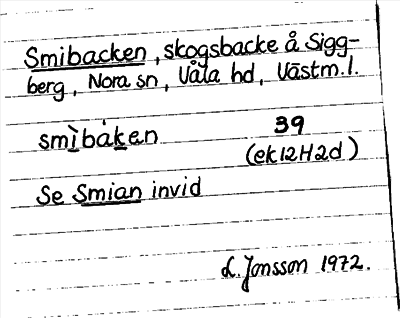 Smibacken, skogsbacke å Sigg-
berg, Nora sn, Våla hd, Västm.l.
smìbáken 39
(ek12H2d)
Se Smian invid
L. Jonsson 1972.